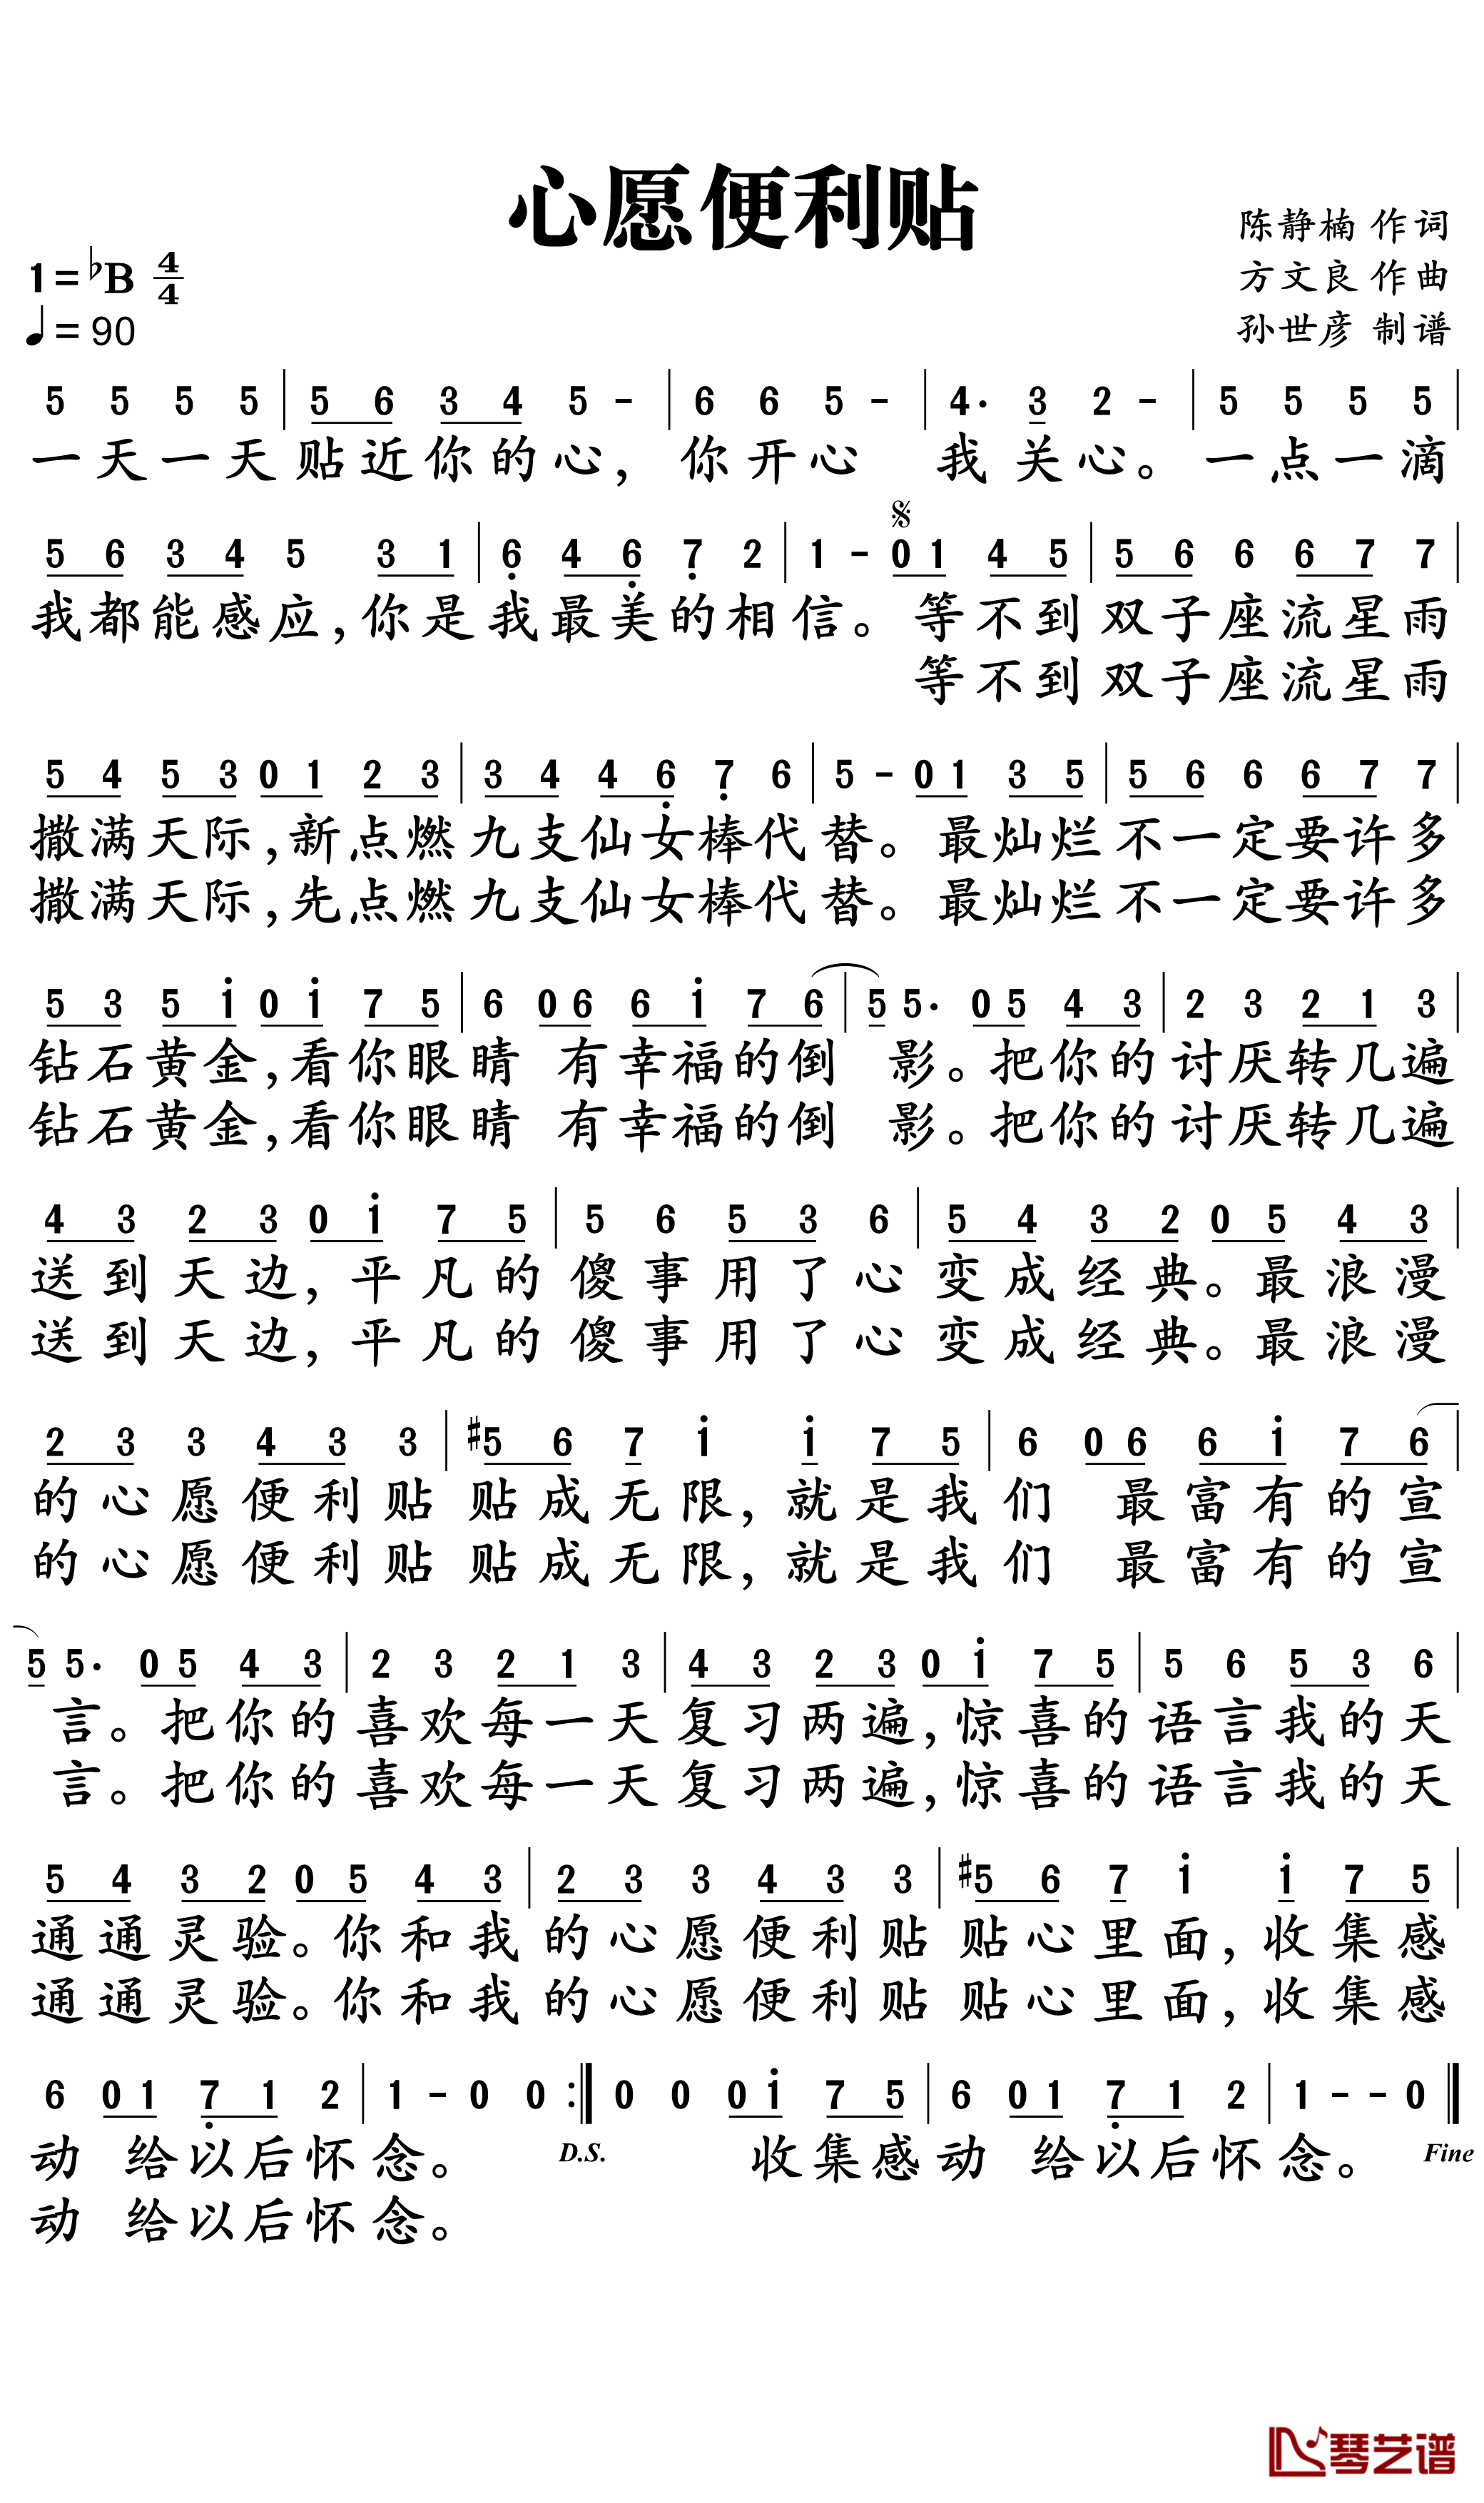 心愿便利贴
陈静楠 作词
1=♭B 4/4
方文良 作曲
♩=90
孙世彦 制谱
5 5 5 5 | 5 6 3 4 5 - | 6 6 5 - | 4· 3 2 - | 5 5 5 5 |
一天一天贴近你的心，你开心 我关心。一点一滴
5 6 3 4 5 3 1 | 6̣ 4 6̣ 7̣ 2 | 1 - 0 1 4 5 | 5 6 6 6 7 7 |
我都能感应，你是我最美的相信。等不到双子座流星雨
等不到双子座流星雨
5 4 5 3 0 1 2 3 | 3 4 4 6̣ 7̣ 6 | 5 - 0 1 3 5 | 5 6 6 6 7 7 |
撒满天际，新点燃九支仙女棒代替。最灿烂不一定要许多
撒满天际，先点燃九支仙女棒代替。最灿烂不一定要许多
5 3 5 1̇ 0 1̇ 7 5 | 6 0 6 6 1̇ 7 6 | 5 5· 0 5 4 3 | 2 3 2 1 3 |
钻石黄金，看你眼睛 有幸福的倒 影。把你的讨厌转几遍
钻石黄金，看你眼睛 有幸福的倒 影。把你的讨厌转几遍
4 3 2 3 0 1̇ 7 5 | 5 6 5 3 6 | 5 4 3 2 0 5 4 3 |
送到天边，平凡的傻事用了心变成经典。最浪漫
送到天边，平凡的傻事用了心变成经典。最浪漫
2 3 3 4 3 3 | #5 6 7 1̇ 1̇ 7 5 | 6 0 6 6 1̇ 7 6 |
的心愿便利贴贴成无限，就是我们 最富有的宣
的心愿便利贴贴成无限，就是我们 最富有的宣
5 5· 0 5 4 3 | 2 3 2 1 3 | 4 3 2 3 0 1̇ 7 5 | 5 6 5 3 6 |
言。把你的喜欢每一天复习两遍，惊喜的语言我的天
言。把你的喜欢每一天复习两遍，惊喜的语言我的天
5 4 3 2 0 5 4 3 | 2 3 3 4 3 3 | #5 6 7 1̇ 1̇ 7 5 |
通通灵验。你和我的心愿便利贴贴心里面，收集感
通通灵验。你和我的心愿便利贴贴心里面，收集感
6 0 1 7̣ 1 2 | 1 - 0 0 :‖ 0 0 0 1̇ 7 5 | 6 0 1 7̣ 1 2 | 1 - - 0 ‖
动 给以后怀念。 D.S. 收集感动 给以后怀念。 Fine
动 给以后怀念。
琴艺谱